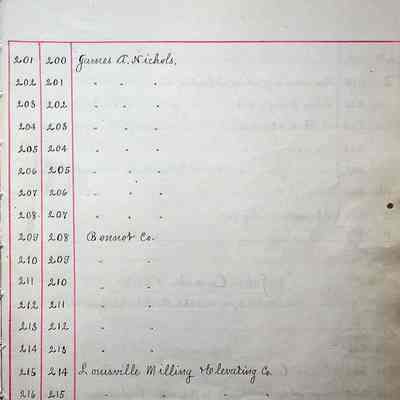 201 200 James A. Nichols.
202 201 " " "
203 202 " " "
204 203 " " "
205 204 " " "
206 205 " " "
207 206 " " "
208 207 " " "
209 208 Bonnot Co.
210 209 " "
211 210 " "
212 211 " "
213 212 " "
214 213 " "
215 214 Louisville Milling & Elevating Co
216 215 " " " "